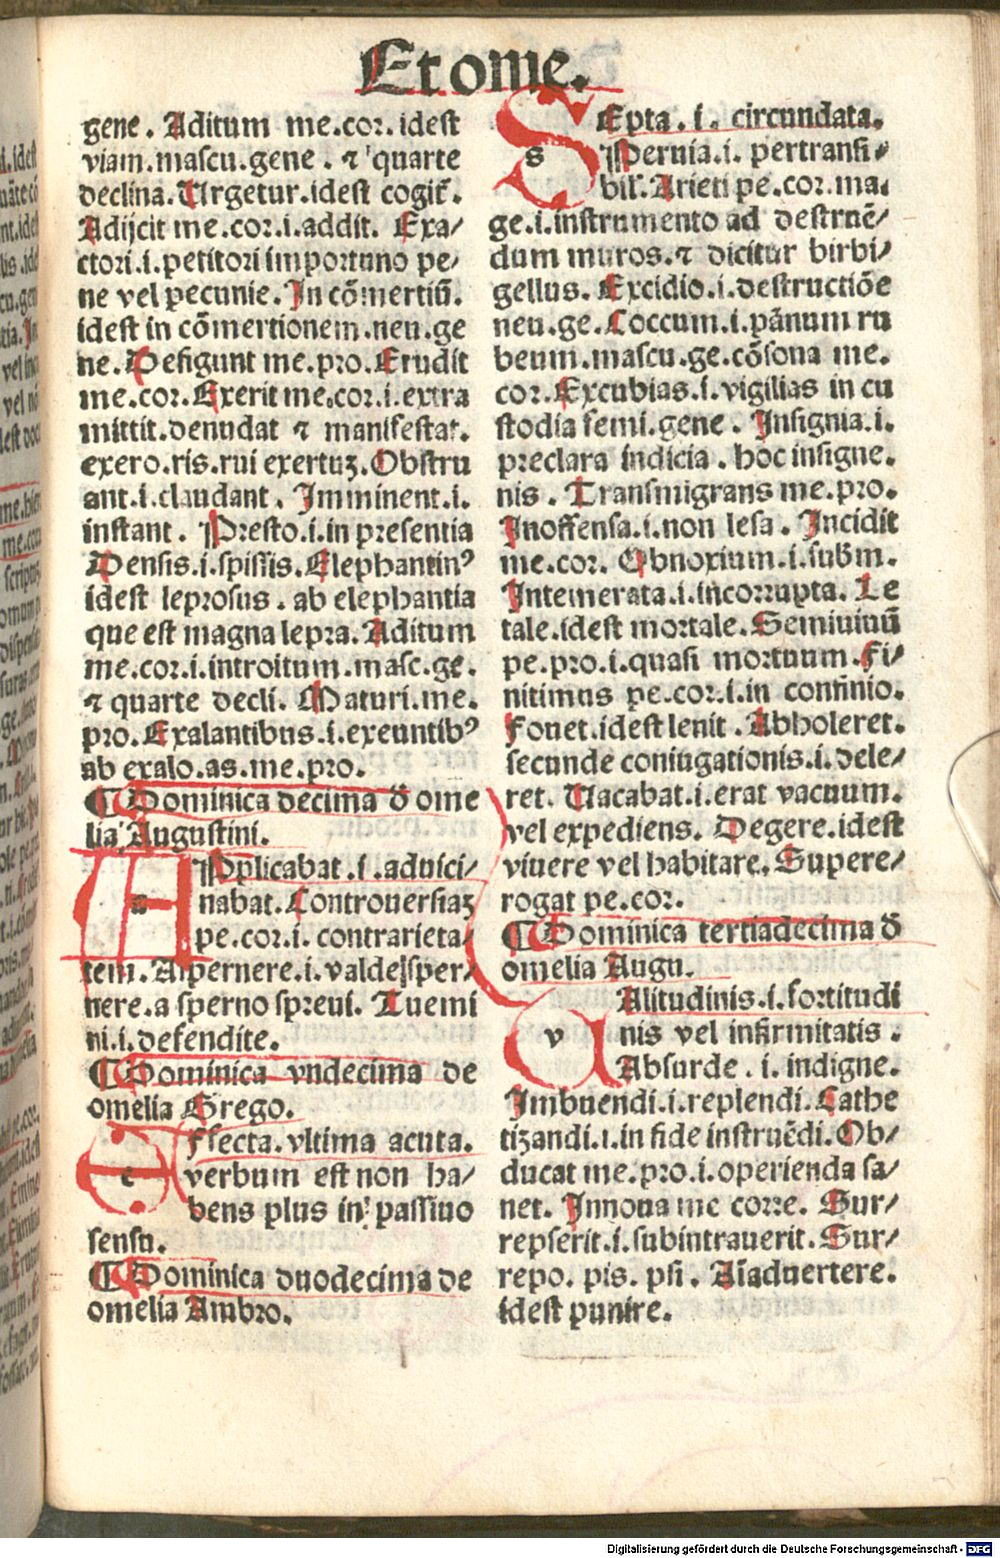 Et ome.
gene. Aditum me.cor.idest
viam.mascu.gene. ⁊ quarte
declina. Urgetur.idest cogit᷑.
Adijcit me.cor.i.addit. Exa/
ctori.i.petitori importuno pe/
ne vel pecunie. In cõmertiũ.
idest in cõmertionem.neu.ge
ne. Defigunt me.pro. Erudit
me.cor. Exerit me.cor.i.extra
mittit.denudat ⁊ manifestat.
exero.ris.rui exertuꝫ. Obstru
ant.i.claudant. Imminent.i.
instant. Presto.i.in presentia
Densis.i.spissis. Elephantinꝰ
idest leprosus. ab elephantia
que est magna lepra. Aditum
me.cor.i.introitum.masc.ge.
⁊ quarte decli. Maturi.me.
pro. Exalantibus.i.exeuntibꝰ
ab exalo.as.me.pro.
¶ Dominica decima đ ome
lia Augustini.
APplicabat.i.aduici/
nabat. Controuersiaꝫ
pe.cor.i.contrarieta/
tem. Aspernere.i.valde sper/
nere.a sperno spreui. Tuemi
ni.i.defendite.
¶ Dominica vndecima de
omelia Grego.
Effecta.vltima acuta.
verbum est non ha/
bens plus in passiuo
sensu.
¶ Dominica duodecima de
omelia Ambro.
SEpta.i.circundata.
s Peruia.i.pertransi/
bil'. Arieti pe.cor.ma.
ge.i.instrumento ad destruẽ/
dum muros.⁊ dicitur birbi/
gellus. Excidio.i.destructiõe
neu.ge. Coccum.i.pãnum ru
beum.mascu.ge.cõsona me.
cor. Excubias.i.vigilias in cu
stodia femi.gene. Insignia.i.
preclara indicia. hoc insigne.
nis. Transmigrans me.pro.
Inoffensa.i.non lesa. Incidit
me.cor. Obnoxium.i.subm.
Intemerata.i.incorrupta. Le
tale.idest mortale. Semiuiuũ
pe.pro.i.quasi mortuum. Fi/
nitimus pe.cor.i.in confinio.
Fouet.idest lenit. Abholeret.
secunde coniugationis.i.dele/
ret. Uacabat.i.erat vacuum.
vel expediens. Degere.idest
viuere vel habitare. Supere/
rogat pe.cor.
¶ Dominica tertiadecima đ
omelia Augu.
vAlitudinis.i.fortitudi
nis vel infirmitatis.
Absurde.i.indigne.
Imbuendi.i.replendi. Cathe
tizandi.i.in fide instruẽdi. Ob/
ducat me.pro.i.operienda sa/
net. Innoua me corre. Sur/
repserit.i.subintrauerit. Sur/
repo. pis. psi. Aĩaduertere.
idest punire.
Digitalisierung gefördert durch die Deutsche Forschungsgemeinschaft - DFG